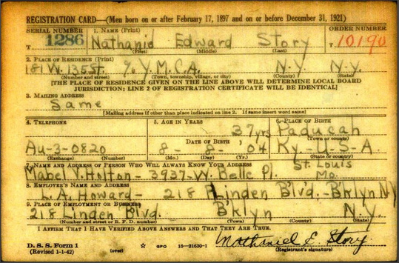 REGISTRATION CARD—(Men born on or after February 17, 1897 and on or before December 31, 1921)
SERIAL NUMBER 1. NAME (Print) ORDER NUMBER
1286 Nathanie Edward Story 10190
2. PLACE OF RESIDENCE (Print)
181 W. 135 St. % Y.M.C.A. N.Y. N.Y.
(Number and street) (Town, township, village, or city) (County) (State)
[THE PLACE OF RESIDENCE GIVEN ON THE LINE ABOVE WILL DETERMINE LOCAL BOARD
JURISDICTION; LINE 2 OF REGISTRATION CERTIFICATE WILL BE IDENTICAL]
3. MAILING ADDRESS
Same
[Mailing address if other than place indicated on line 2. If same insert word same]
4. TELEPHONE 5. AGE IN YEARS 6. PLACE OF BIRTH
37 yrs Paducah
DATE OF BIRTH
AU-3-0820 8 - 8 - 04 Ky - U-S-A
7. NAME AND ADDRESS OF PERSON WHO WILL ALWAYS KNOW YOUR ADDRESS St. Louis
Mabel Holton - 3937-W. Belle Pl. Mo.
8. EMPLOYER'S NAME AND ADDRESS
L.A. Howard - 218 Linden Blvd.- Bklyn NY
9. PLACE OF EMPLOYMENT OR BUSINESS
218 Linden Blvd. B'klyn N.Y.
(Number and street or R. F. D. number) (Town) (County) (State)
I AFFIRM THAT I HAVE VERIFIED ABOVE ANSWERS AND THAT THEY ARE TRUE.
D. S. S. Form 1
(Revised 1-1-42) (over) Nathaniel E. Story
(Registrant's signature)